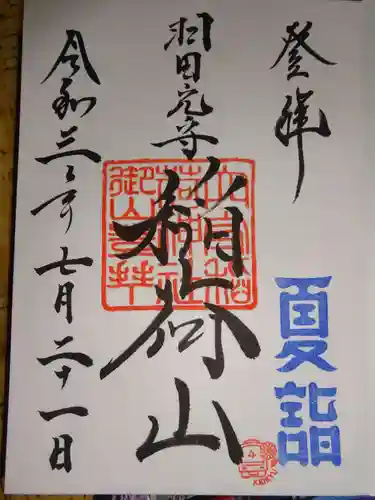 登拝
夏詣
羽田元守
稲荷山
令和三年七月二十一日